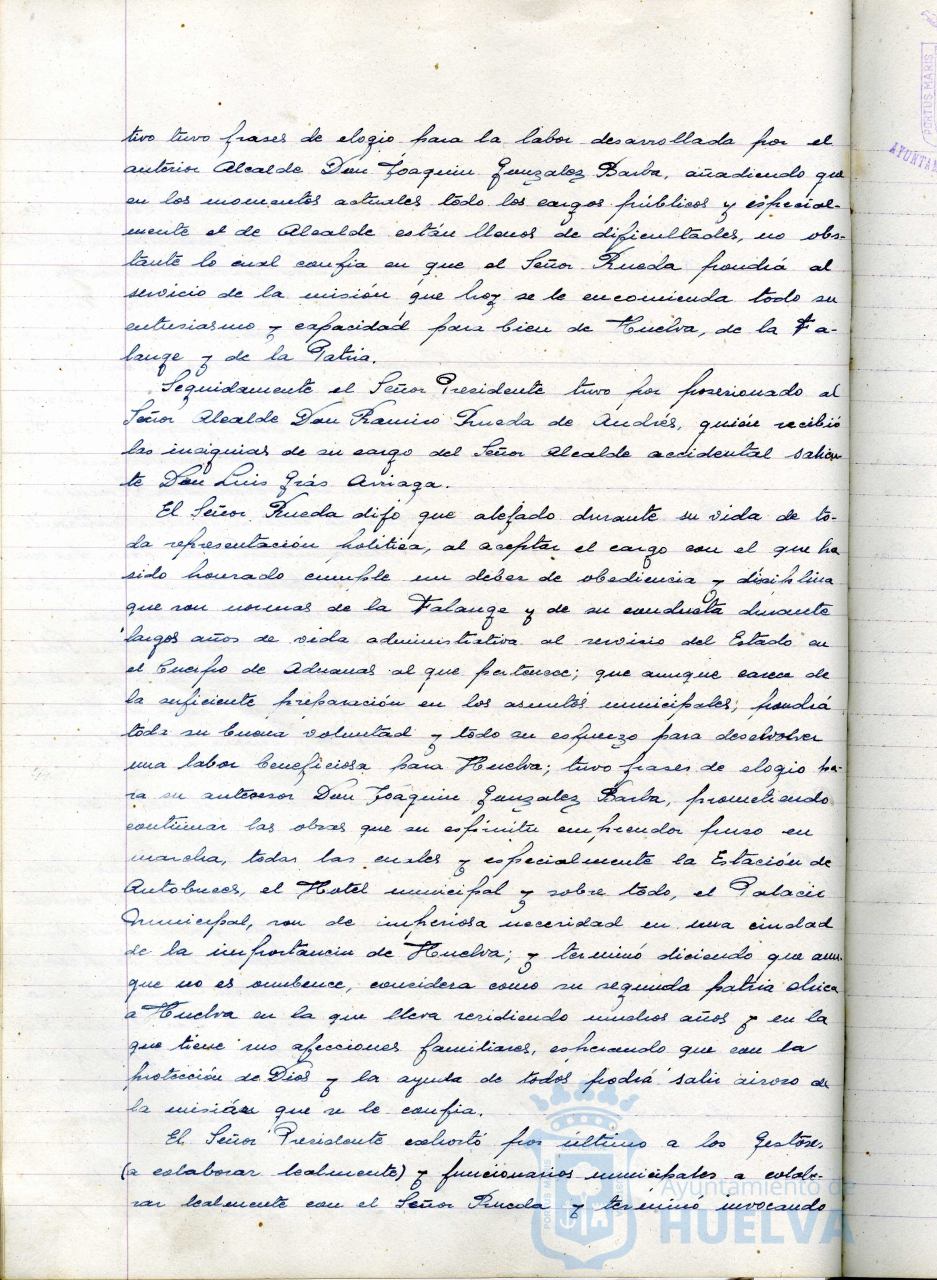 tivo tuvo frases de elogio para la labor desarrollada por el
anterior Alcalde Don Joaquin Gonzalez Barba, añadiendo que
en los momentos actuales todo los cargos públicos y especial-
mente el de Alcalde están llenos de dificultades, no obs-
tante lo cual confia en que el Señor Rueda pondrá al
servicio de la misión que hoy se le encomienda todo su
entusiasmo y capacidad para bien de Huelva, de la Fa-
lange y de la Patria.
Seguidamente el Señor Presidente tuvo por posesionado al
Señor Alcalde Don Ramiro Rueda de Andrés, quién recibió
las insignias de su cargo del Señor Alcalde accidental salien-
te Don Luis Grás Arriaga.
El Señor Rueda dijó que alejado durante su vida de to-
da representación politica, al aceptar el cargo con el que ha
sido honrado cumple un deber de obediencia y disciplina
que son normas de la Falange y de su conducta durante
largos años de vida administrativa al servicio del Estado en
el Cuerpo de Aduanas al que pertenece; que aunque carece de
la suficiente preparación en los asuntos municipales, pondrá
toda su buena voluntad y todo su esfuerzo para desolvolver
una labor beneficiosa para Huelva; tuvo frases de elogio pa-
ra su antecesor Don Joaquin Gonzalez Barba, prometiendo
continuar las obras que su espíritu emprendor puso en
marcha, todas las cuales y especialmente la Estación de
Autobuses, el Hotel municipal y sobre todo, el Palacio
Municipal, son de imperiosa necesidad en una ciudad
de la importancia de Huelva; y terminó diciendo que aun-
que no es onubence, considera como su segunda patria chica
a Huelva en la que lleva residiendo muchos años y en la
que tiene sus afecciones familiares, esperando que con la
protección de Dios y la ayuda de todos podrá salir airoso de
la misión que se le confia.
El Señor Presidente exhortó por último a los Gestores
(a colaborar lealmente) y funcionarios municipales a colabo-
rar lealmente con el Señor Rueda y terminó invocando
PORTUS MARIS
AYUNTAM
Ayuntamiento de
HUELVA